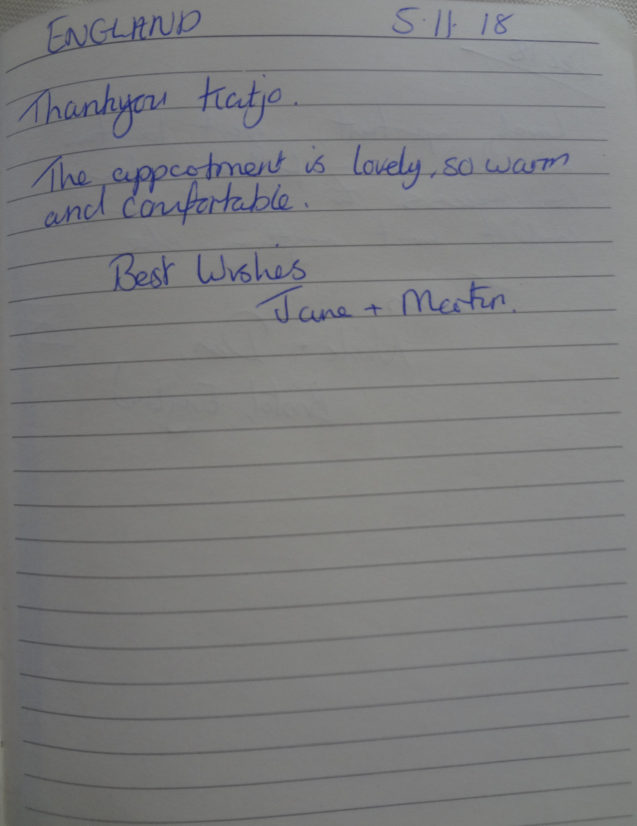 ENGLAND 5.11.18
Thankyou Katjo.
The appcotment is lovely, so warm
and comfortable.
Best Wishes
Jane + Martin.